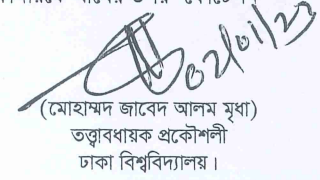 ০২/০১/২৩
(মোহাম্মদ জাবেদ আলম মৃধা)
তত্ত্বাবধায়ক প্রকৌশলী
ঢাকা বিশ্ববিদ্যালয়।